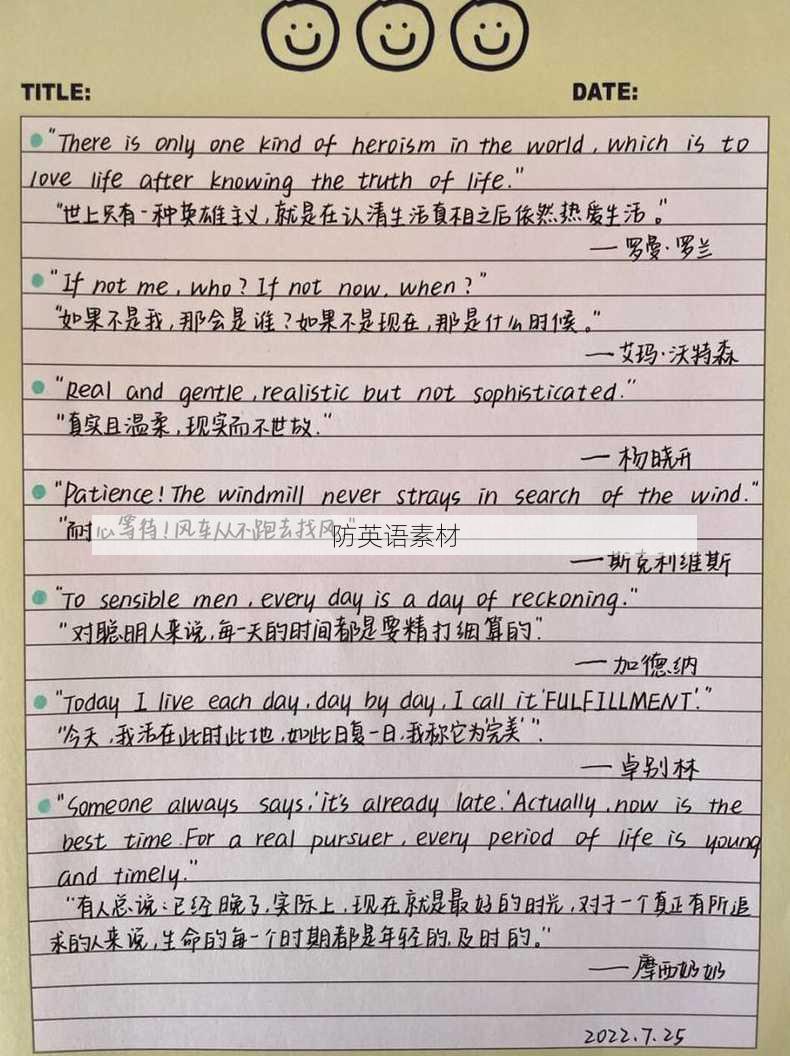 TITLE: DATE:
"There is only one kind of heroism in the world, which is to
love life after knowing the truth of life."
"世上只有一种英雄主义,就是在认清生活真相之后依然热爱生活。"
— 罗曼·罗兰
"If not me, who? If not now, when?"
"如果不是我,那会是谁?如果不是现在,那是什么时候。"
— 艾玛·沃特森
"Real and gentle, realistic but not sophisticated."
"真实且温柔,现实而不世故."
— 杨晓开
"Patience! The windmill never strays in search of the wind."
"耐心等待!风车从不跑去找风."
防英语素材
— 斯克利维斯
"To sensible men, every day is a day of reckoning."
"对聪明人来说,每一天的时间都是要精打细算的".
— 加德纳
"Today I live each day, day by day, I call it 'FULFILLMENT'."
"今天,我活在此时此地,如此日复一日,我称它为'完美'".
— 卓别林
"Someone always says, 'it's already late.' Actually, now is the
best time. For a real pursuer, every period of life is young
and timely."
"有人总说:已经晚了,实际上,现在就是最好的时光,对于一个真正有所追
求的人来说,生命的每一个时期都是年轻的,及时的。"
— 摩西奶奶
2022.7.25